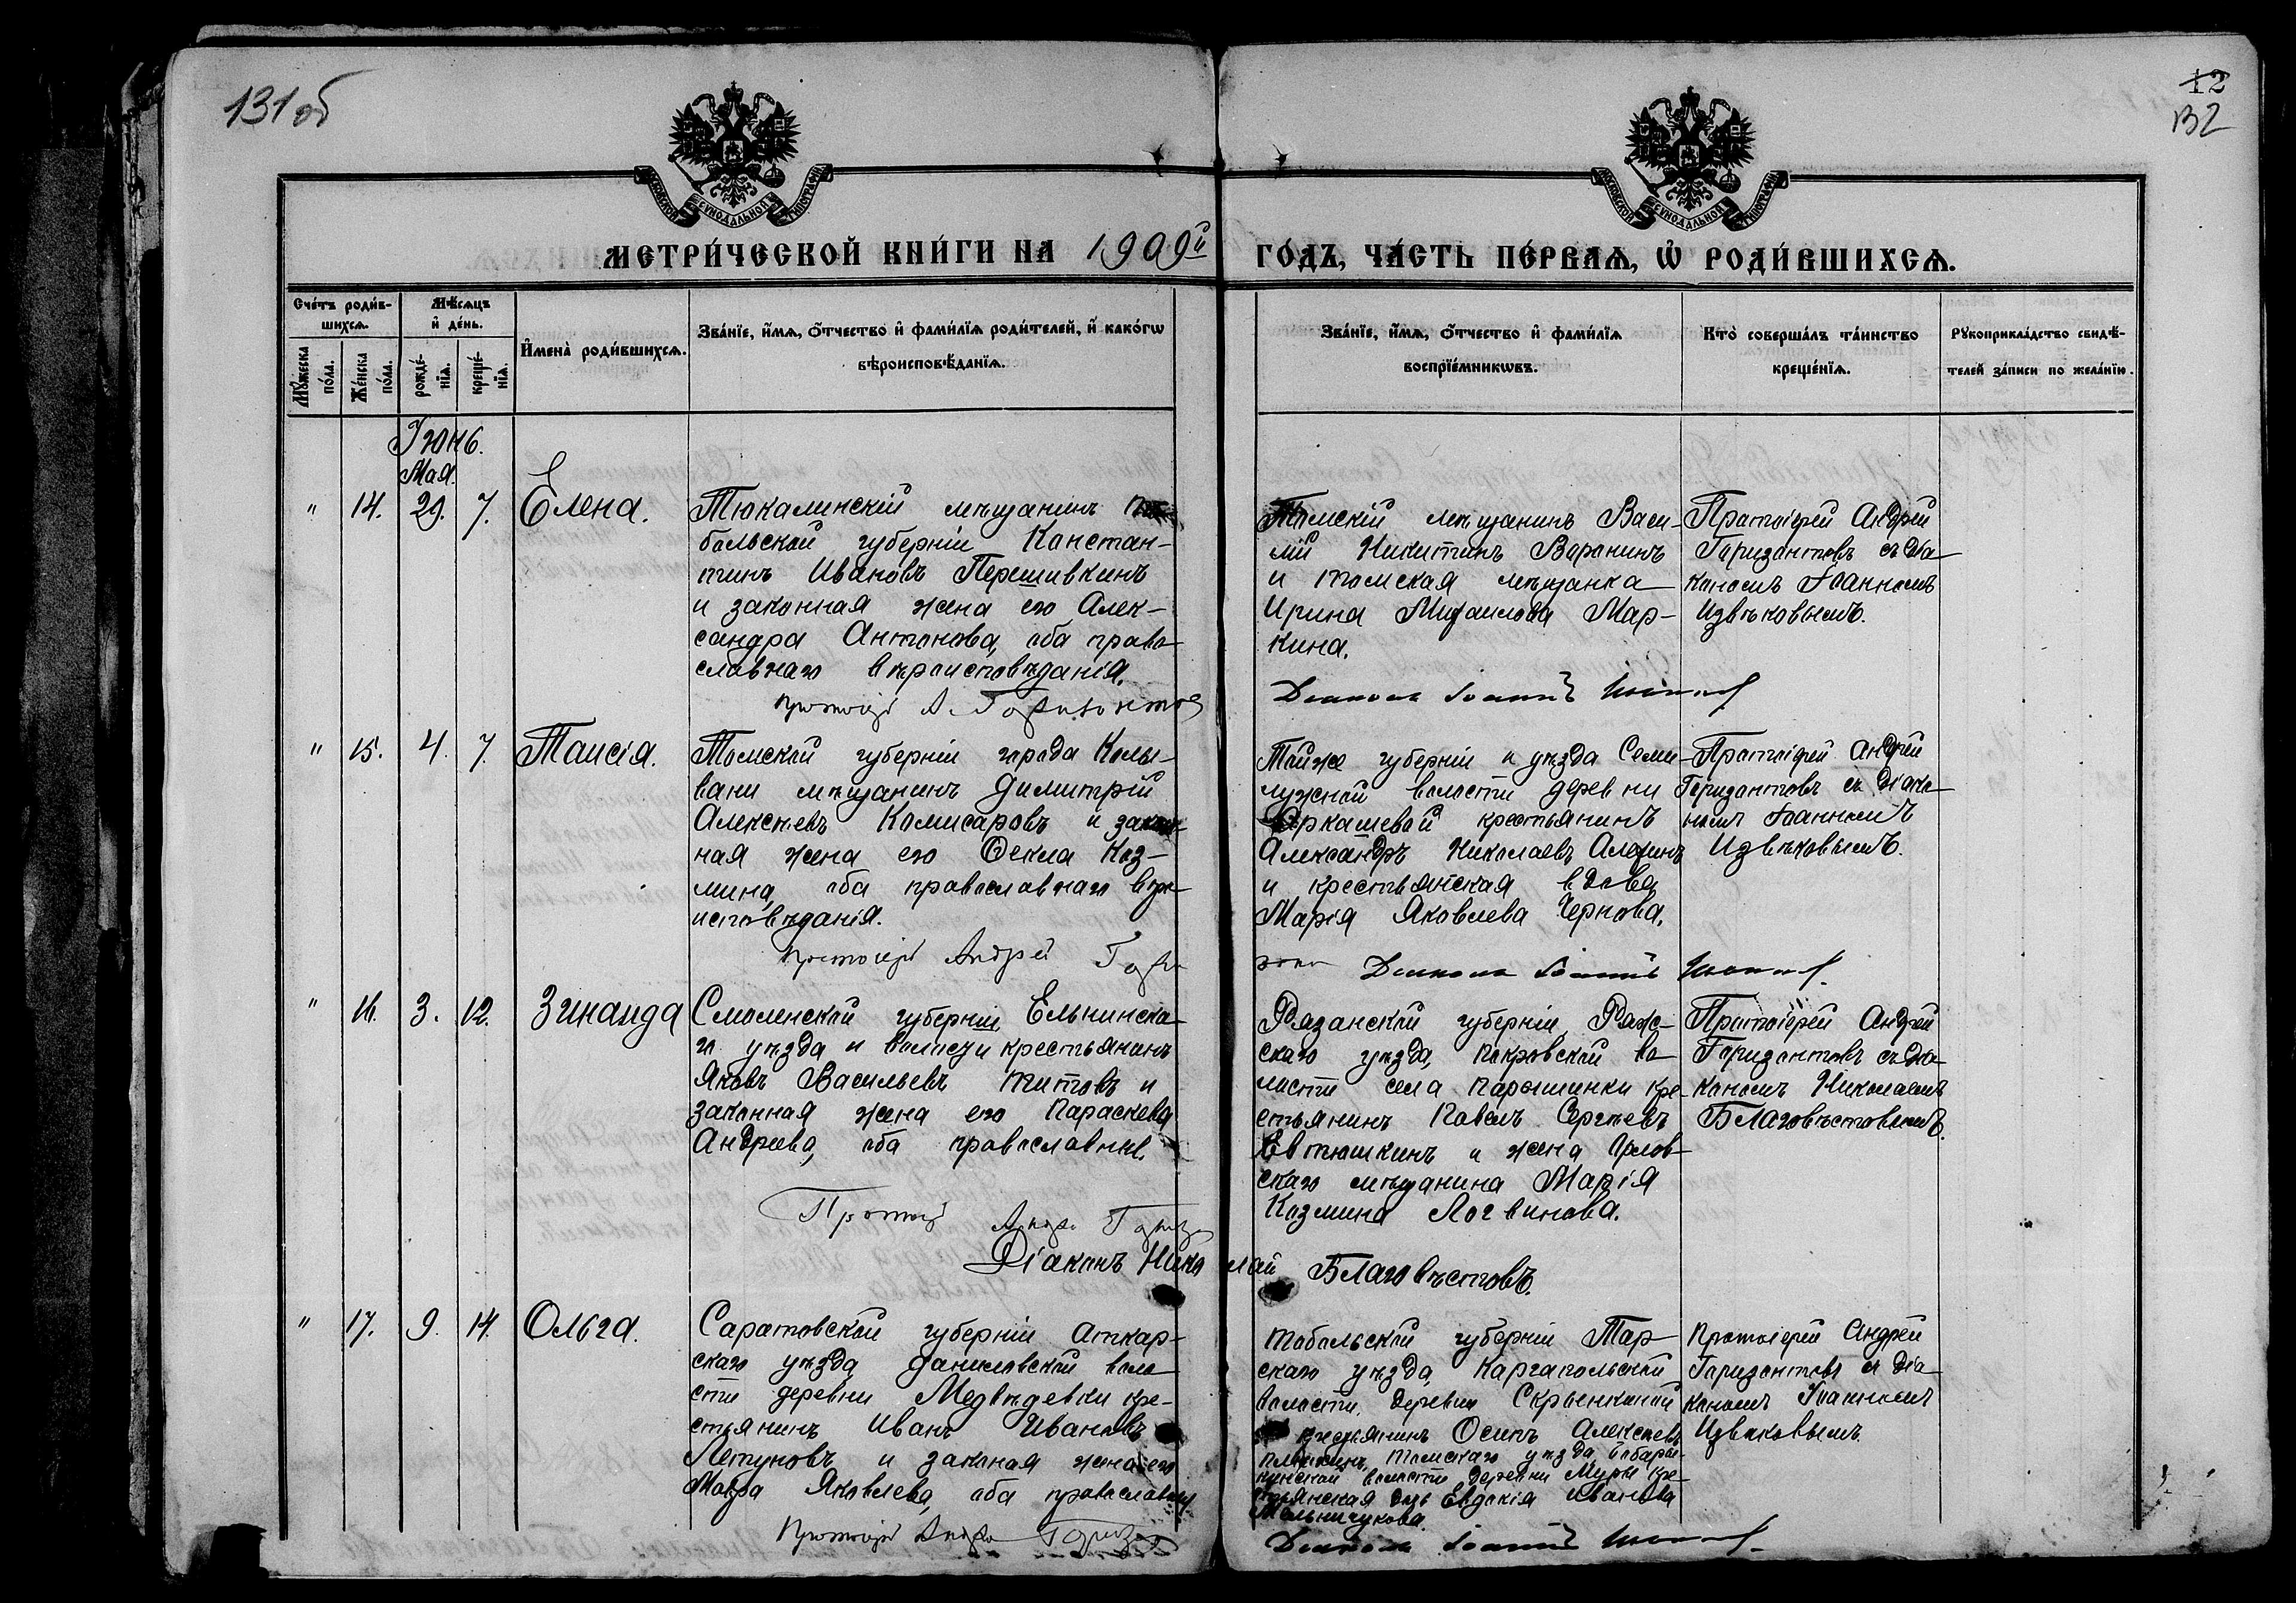 131об
12
132
МОСКОВСКОЙ СѴНОДАЛЬНОЙ ТИПОГРАФІИ
МОСКОВСКОЙ СѴНОДАЛЬНОЙ ТИПОГРАФІИ
МЕТРИ́ЧЕСКОЙ КНИ́ГИ НА 1909й
ГО́ДЪ, ЧА́СТЬ ПЕ́РВАѦ, Ѡ҆ РОДИ́ВШИХСѦ.
Сче́тъ роди́в-
шихсѧ.
Мѣ́сѧцъ
и҆ де́нь.
Мꙋ́жеска
по́ла.
Же́нска
по́ла.
рожде́-
нїѧ.
креще́-
нїѧ.
И҆мена̀ роди́вшихсѧ.
Зва́нїе, и҆́мѧ, ѻ҆́тчество и҆ фами́лїѧ роди́телей, и҆ како́гѡ
вѣроисповѣ́данїѧ.
Зва́нїе, и҆́мѧ, ѻ҆́тчество и҆ фами́лїѧ
воспрїе́мникѡвъ.
Кто̀ соверша́лъ та́инство
креще́нїѧ.
Рꙋкоприкла́дство свидѣ́-
телей за́писи по жела́нїю.
Іюнь.
Мая.
" 14. 29. 7. Елена.
Тюкалинскій мѣщанинъ То-
больской губерніи Констан-
тинъ Ивановъ Перешивкинъ
и законная жена его Алек-
сандра Антонова, оба право-
славнаго вѣроисповѣданія.
Протоіерей А. Горизонтов
Томскій мѣщанинъ Васи-
лій Никитинъ Воронинъ
и томская мѣщанка
Ирина Михаилова Мар-
кина.
Протоіерей Андрей
Горизонтовъ съ діа-
кономъ Іоанномъ
Извѣковымъ.
Діаконъ Іоаннъ
" 15. 4. 7. Таисія.
Томской губерніи города Колы-
вани мѣщанинъ Димитрій
Алексѣевъ Комисаровъ и закон-
ная жена его Ѳекла Коз-
мина, оба православнаго вѣро-
исповѣданія.
Протоіерей Андрей Гори
зонт
Тойже губерніи и уѣзда Семи-
лужной волости деревни
Аркашевой крестьянинъ
Александръ Николаевъ Алехинъ
и крестьянская вдова
Марія Яковлева Чернова.
Протоіерей Андрей
Горизонтовъ съ діако-
номъ Іоанномъ
Извѣковымъ.
Діаконъ Іоаннъ
" 16. 3. 12. Зинаида
Смоленской губерніи Ельнинска-
го уѣзда и волости крестьянинъ
Яковъ Васильевъ Титовъ и
законная жена его Параскева
Андреева, оба православные.
Протоіер Андре Горизо
Діаконъ Николай Благовѣстовъ.
Рязанской губерніи Ряж-
скаго уѣзда, Покровской во-
лости села Парышинки кре-
стьянинъ Павелъ Сергѣевъ
Евтюшкинъ и жена Орлов-
скаго мѣщанина Марія
Козмина Логвинова.
Протоіерей Андрей
Горизонтовъ съ діа-
кономъ Николаемъ
Благовѣстовымъ.
" 17. 9. 14. Ольга.
Саратовской губерніи Аткар-
скаго уѣзда, Даниловской воло-
сти деревни Медвѣдевки кре-
стьянинъ Иванъ Ивановъ
Летуновъ и законая жена его
Мавра Яковлева, оба православны
Протоіерей Андре Горизо
Тобольской губерніи Тар-
скаго уѣзда, Каргапольской
волости, деревни
крестьянинъ Осипъ Алексѣевъ
Томскаго уѣзда,
волости деревни Мурты кре-
стьянская дочь Евдокія Иванова
Мельничукова.
Протоіерей Андрей
Горизонтовъ съ діа-
кономъ Іоанномъ
Извѣковымъ.
Діаконъ Іоаннъ